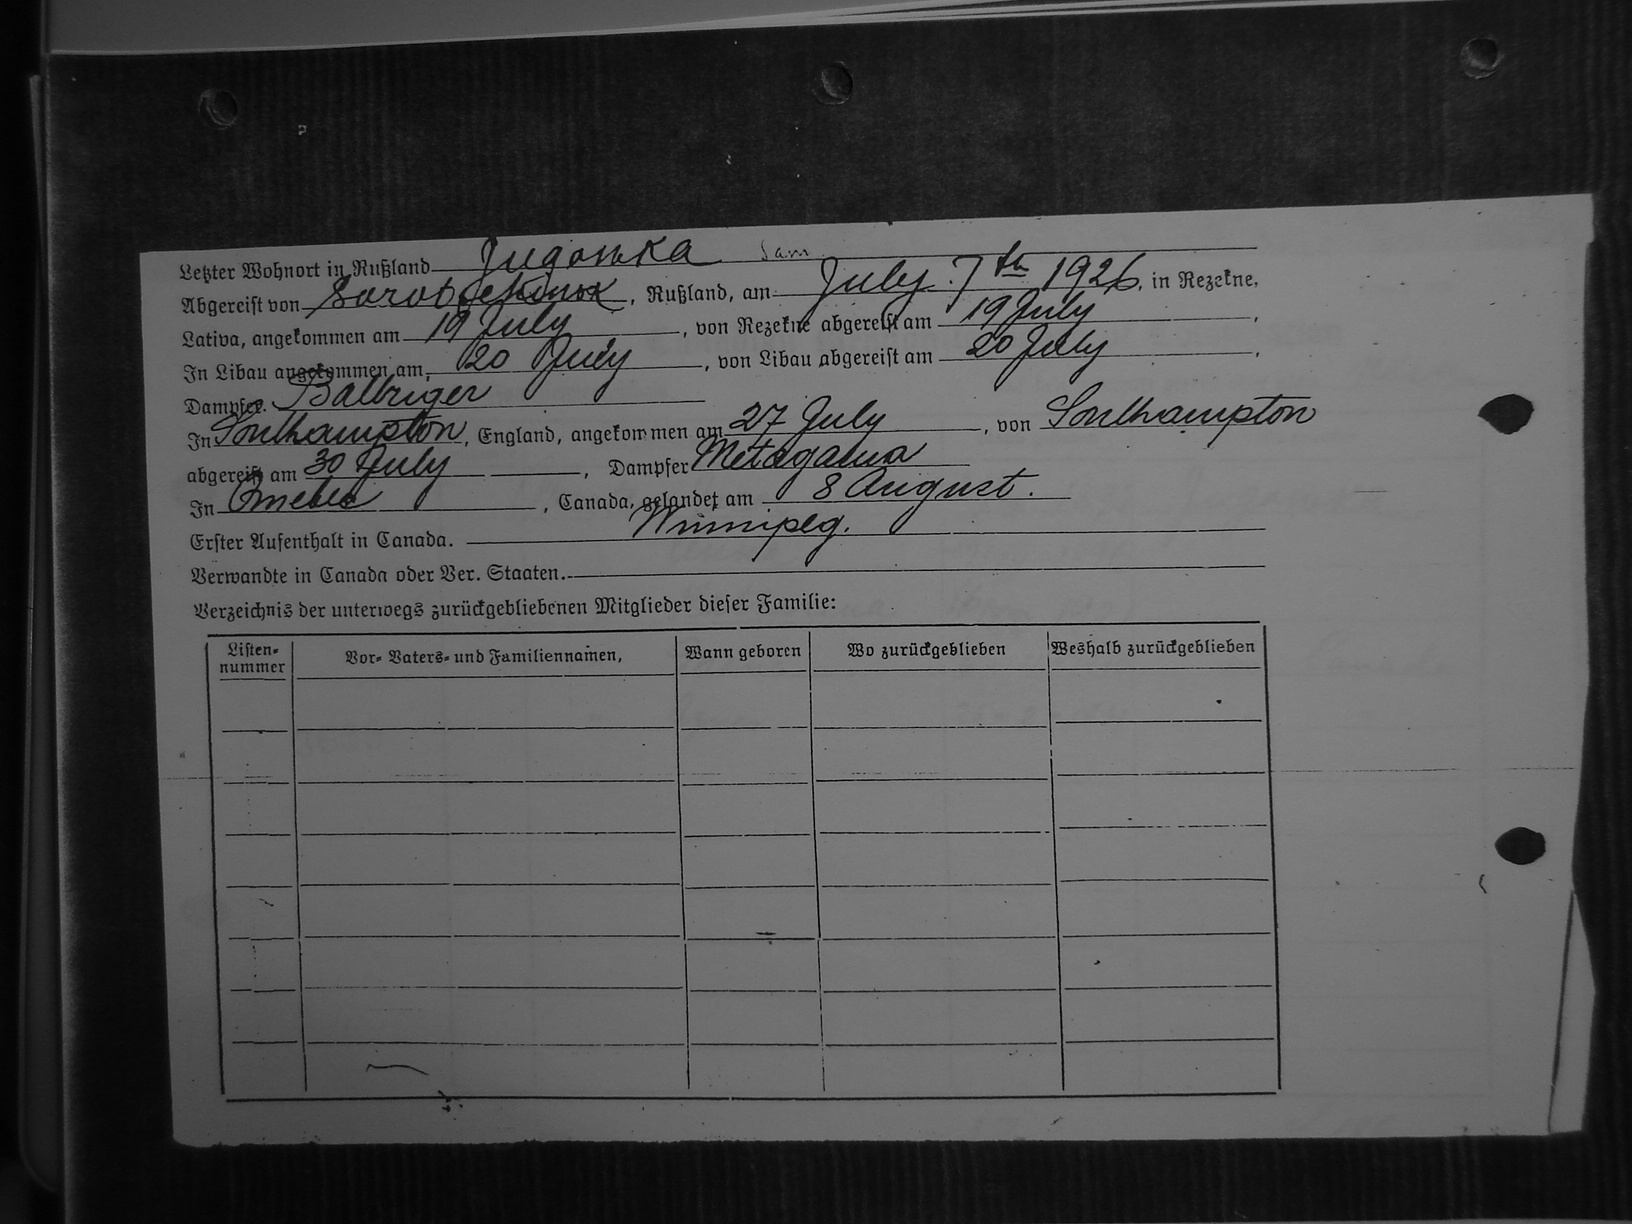 Letzter Wohnort in Rußland Jugowka Sam
Abgereist von Sorotschinsk, Rußland, am July 7th 1926, in Rezekne,
Lativa, angekommen am 19 July, von Rezekne abgereist am 19 July,
In Libau angekommen am, 20 July, von Libau abgereist am 20 July,
Dampfer. Baltriger
In Southampton, England, angekommen am 27 July, von Southampton
abgereist am 30 July, Dampfer Metagama
In Quebec, Canada, gelandet am 8 August.
Erster Aufenthalt in Canada. Winnipeg.
Verwandte in Canada oder Ver. Staaten.
Verzeichnis der unterwegs zurückgebliebenen Mitglieder dieser Familie:
Listen-nummer Vor- Vaters- und Familiennamen, Wann geboren Wo zurückgeblieben Weshalb zurückgeblieben